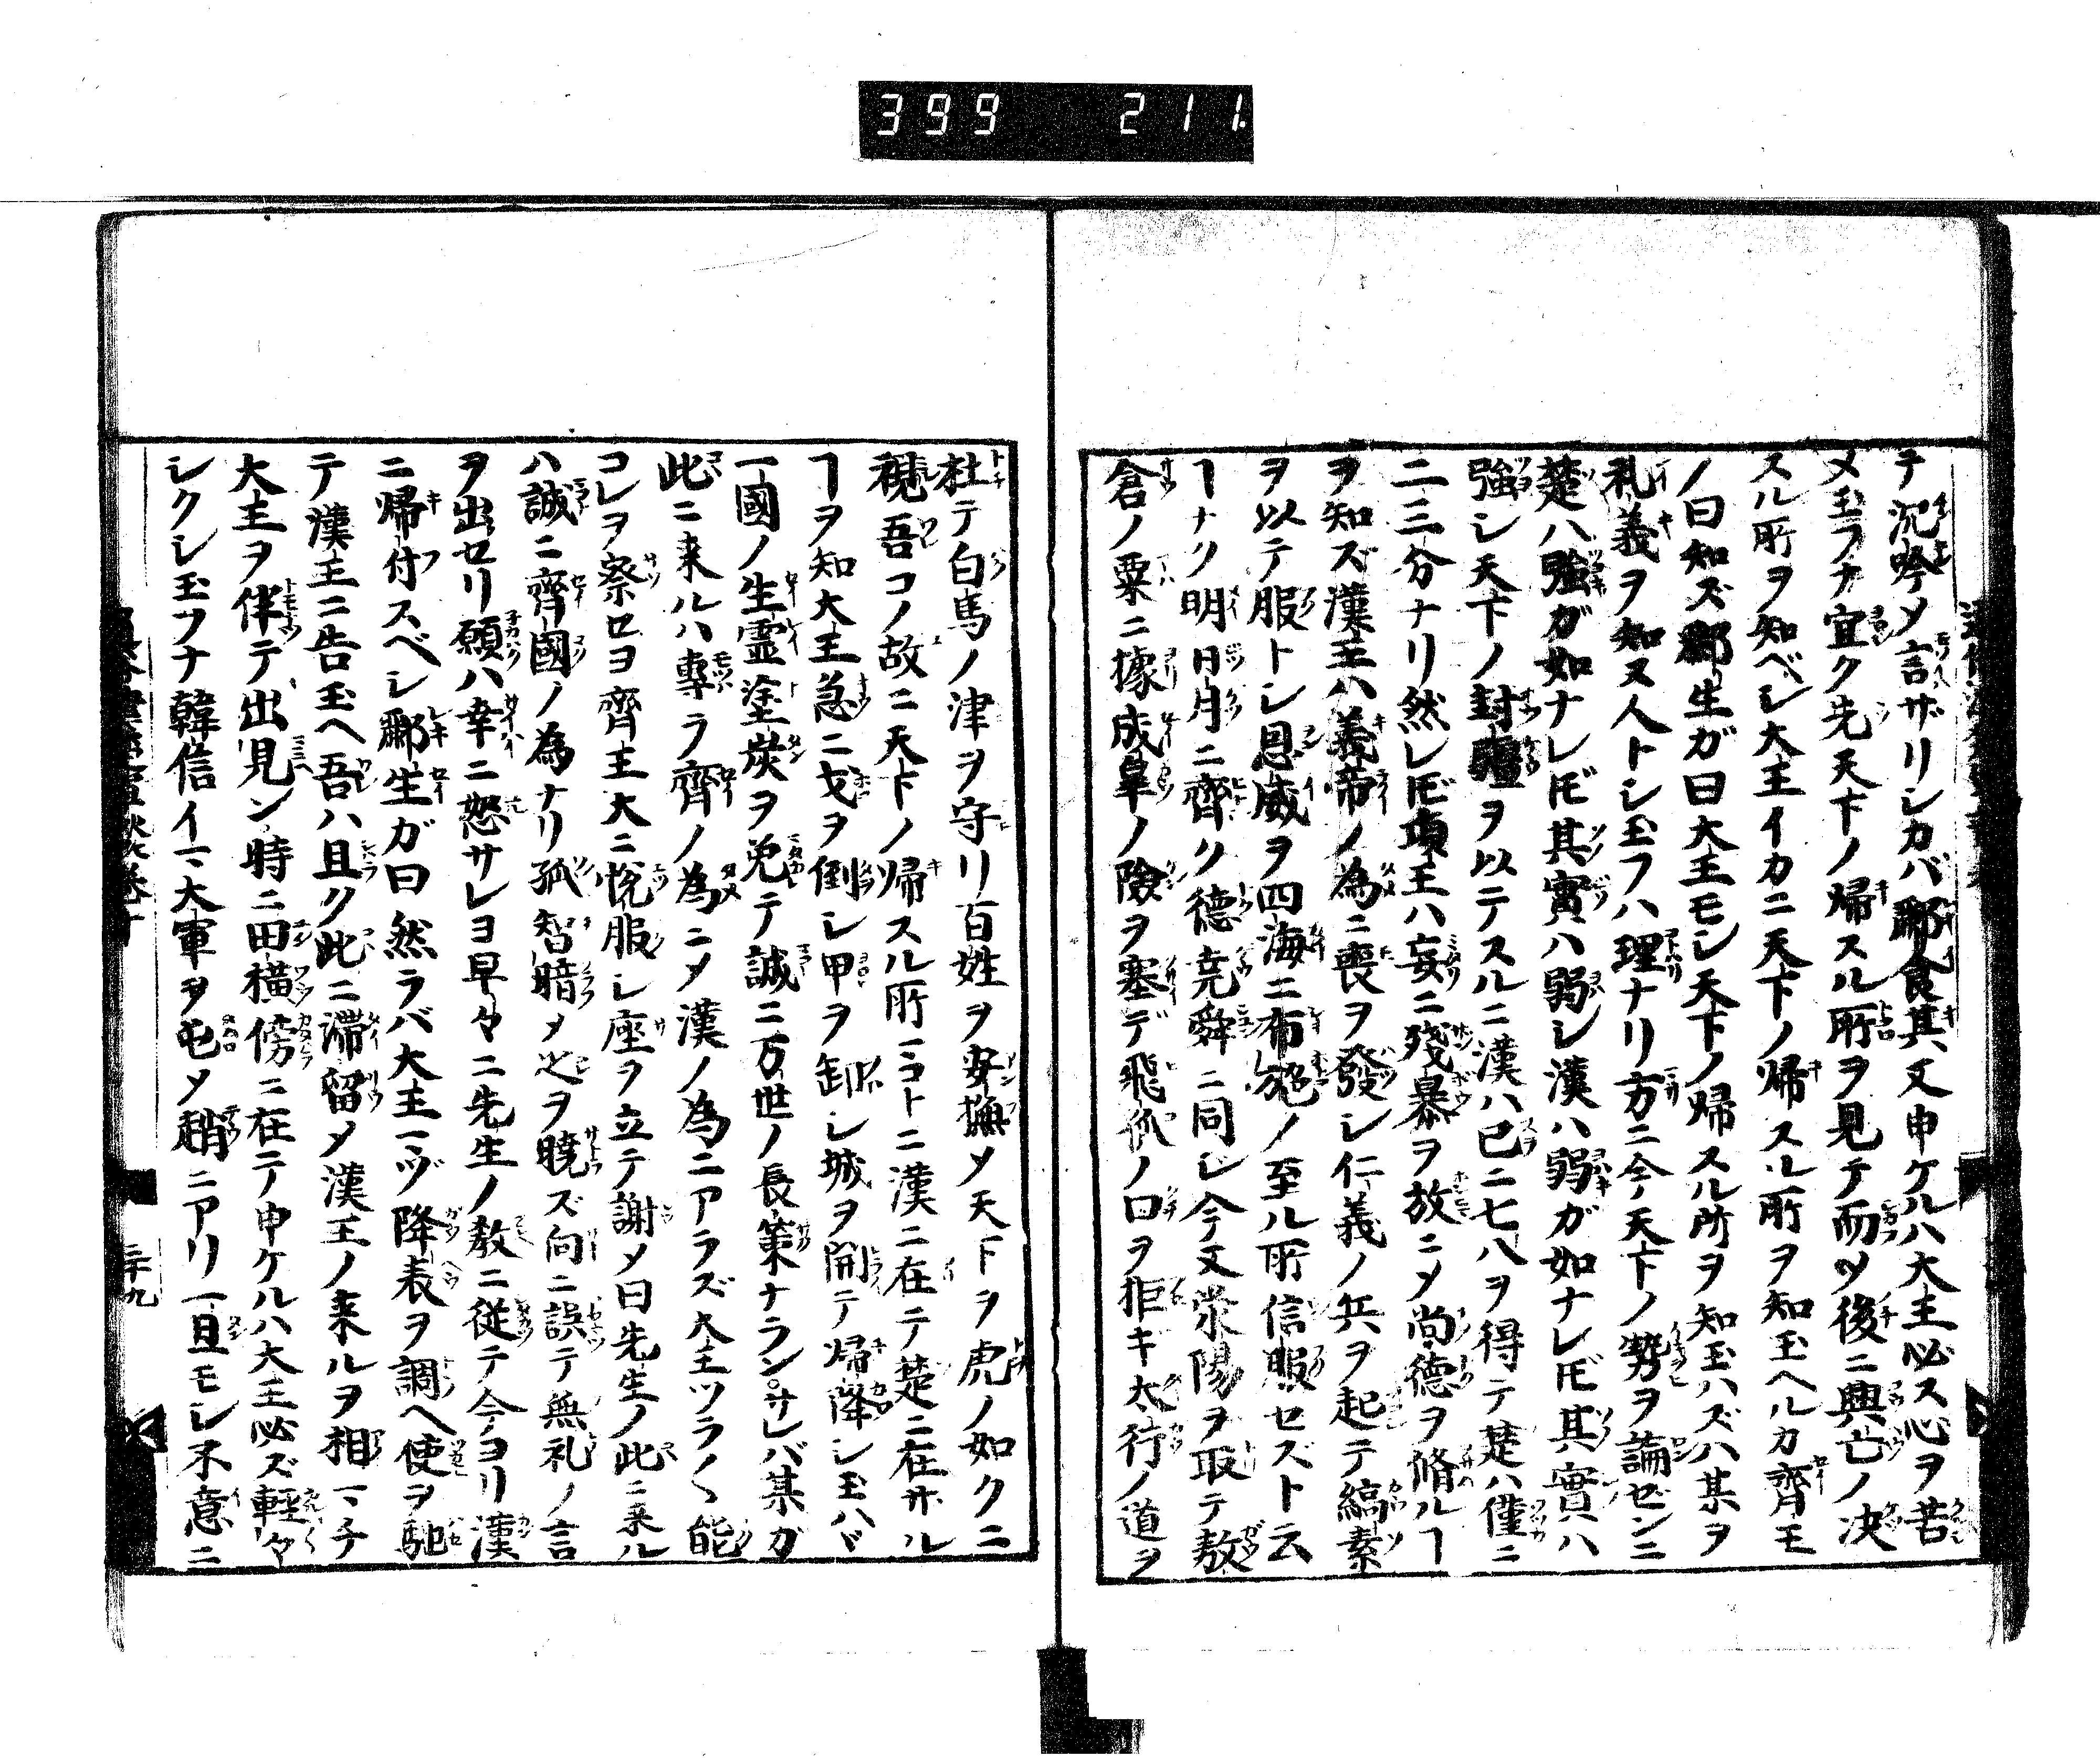 399 211
テ沉吟〆言ザリシカバ酈食其又申ケルハ大王必ス心ヲ苦
〆玉フナ宜ク先天下ノ帰スル所ヲ見テ而〆後ニ興亡ノ决
スル所ヲ知ベシ大王イカニ天下ノ帰スル所ヲ知玉ヘルカ齊王
ノ曰知ズ酈生ガ曰大王モシ天下ノ帰スル所ヲ知玉ハズハ某ヲ
礼義ヲ知ヌ人トシ玉フハ理ナリ方ニ今天下ノ勢ヲ論ゼンニ
楚ハ強ガ如ナレ𪜈其實ハ弱シ漢ハ弱ガ如ナレ𪜈其實ハ
強シ天下ノ封疆ヲ以テスルニ漢ハ已ニ七八ヲ得テ楚ハ僅ニ
二三分ナリ然レ𪜈項王ハ妄ニ殘暴ヲ放ニ〆尚德ヲ脩ルヿ
ヲ知ズ漢王ハ義帝ノ為ニ喪ヲ發シ仁義ノ兵ヲ起テ縞素
ヲ以テ服トシ恩威ヲ四海ニ布施ノ至ル所信服セズト云
ヿナク明日月ニ齊ク德尭舜ニ同ジ今又滎陽ヲ取テ敖
倉ノ粟ニ據成皐ノ險ヲ塞デ飛狐ノ口ヲ拒キ太行ノ道ヲ
杜テ白馬ノ津ヲ守リ百姓ヲ安撫〆天下ヲ虎ノ如クニ
視吾コノ故ニ天下ノ帰スル所マコトニ漢ニ在テ楚ニ在ザル
ヿヲ知大王急ニ戈ヲ倒シ甲ヲ卸シ城ヲ開テ帰降シ玉ハヾ
一國ノ生霊塗炭ヲ免テ誠ニ万世ノ長策ナランサレバ某ガ
此ニ来ルハ專ラ齊ノ為ニ〆漢ノ為ニアラズ大王ツラ〱能
コレヲ察セヨ齊王大ニ悅服シ座ヲ立テ謝〆曰先生ノ此ニ来ル
ハ誠ニ齊國ノ為ナリ孤智暗〆之ヲ曉ズ向ニ誤テ無礼ノ言
ヲ出セリ願ハ幸ニ怒サレヨ早々ニ先生ノ教ニ従テ今ヨリ漢
ニ帰付スベシ酈生ガ曰然ラバ大王マヅ降表ヲ調ヘ使ヲ馳
テ漢王ニ告玉ヘ吾ハ且ク此ニ滞留〆漢王ノ来ルヲ相マチ
大王ヲ伴テ出見ン時ニ田横傍ニ在テ申ケルハ大王必ズ輕々
シクシ玉フナ韓信イマ大軍ヲ屯〆趙ニアリ一旦モシ不意ニ
三十九